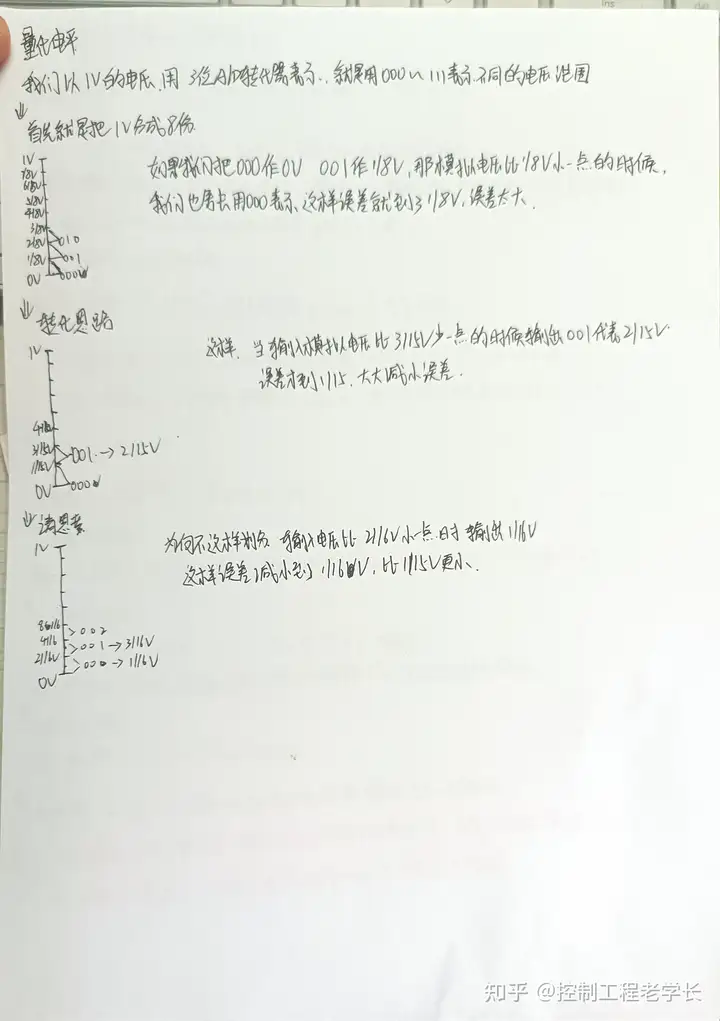 量化电平
我们以1V的电压,用 3位A/D转化器表示,就是用000~111表示不同的电压范围
↓
首先就是把1V分成8份
1V
7/8V
6/8V
5/8V
4/8V
3/8V
2/8V
1/8V
0V
010
001
000
如果我们把000作0V 001作1/8V,那模拟电压比1/8V小一点的时候,
我们也要去用000表示,这样误差就到了1/8V,误差太大.
↓ 转化思路
1V
3/15V
1/15V
0V
001 → 2/15V
000
这样,当输入模拟电压比3/15V少一点的时候输出001代表2/15V.
误差才到1/15,大大减小误差.
↓ 请思考
1V
4/16
2/16V
0V
002
001 → 3/16V
000 → 1/16V
为何不这样划分 输入电压比 2/16V小一点时 输出1/16V
这样误差减小到了1/16V,比1/15V更小.
知乎 @控制工程老学长
ins